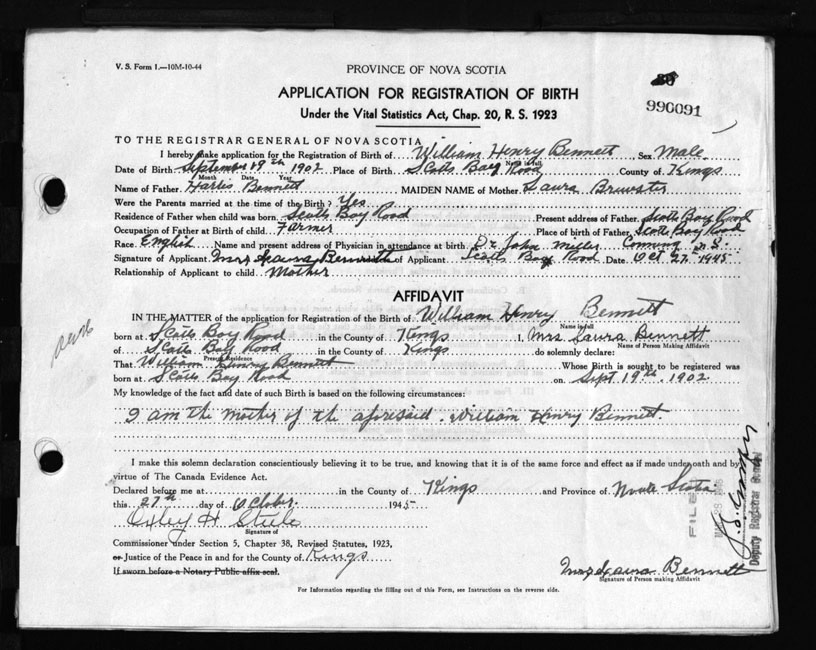 V. S. Form 1.—10M-10-44
PROVINCE OF NOVA SCOTIA
990091
APPLICATION FOR REGISTRATION OF BIRTH
Under the Vital Statistics Act, Chap. 20, R. S. 1923
TO THE REGISTRAR GENERAL OF NOVA SCOTIA
I hereby make application for the Registration of Birth of William Henry Bennett, Sex Male.
Name in full
Date of Birth September 19th 1902 Place of Birth Scotts Bay Road County of Kings
Month Date Year
Name of Father Harris Bennett MAIDEN NAME of Mother Laura Brewster
Were the Parents married at the time of the Birth? Yes
Residence of Father when child was born Scotts Bay Road Present address of Father Scotts Bay Road
Occupation of Father at Birth of child Farmer Place of birth of Father Scotts Bay Road
Race English Name and present address of Physician in attendance at birth Dr John Miller Canning N S.
Signature of Applicant Mrs Laura Bennett of Applicant Scotts Bay Road Date Oct 27th 1945
Relationship of Applicant to child Mother
AFFIDAVIT
IN THE MATTER of the application for Registration of the Birth of William Henry Bennett
Name in full
born at Scotts Bay Road in the County of Kings I, Mrs Laura Bennett
Name of Person Making Affidavit
of Scotts Bay Road in the County of Kings do solemnly declare:
Present Residence
That William Henry Bennett Whose Birth is sought to be registered was
born at Scotts Bay Road on Sept 19th 1902
My knowledge of the fact and date of such Birth is based on the following circumstances:
I am the mother of the aforesaid William Henry Bennett.
I make this solemn declaration conscientiously believing it to be true, and knowing that it is of the same force and effect as if made under oath and by
virtue of The Canada Evidence Act.
Declared before me at in the County of Kings and Province of Nova Scotia
this 27th day of October 1945
H Steele
Signature of
Commissioner under Section 5, Chapter 38, Revised Statutes, 1923,
or Justice of the Peace in and for the County of Kings
If sworn before a Notary Public affix seal.
Mrs Laura Bennett
Signature of Person making Affidavit
For Information regarding the filling out of this Form, see Instructions on the reverse side.
FILED
Deputy Registrar General